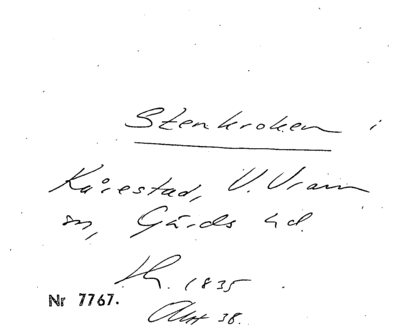 Stenkroken i
Kårestad, V. Vram
sn, Gärds hd.
1835
Nr 7767.
Akt 38.